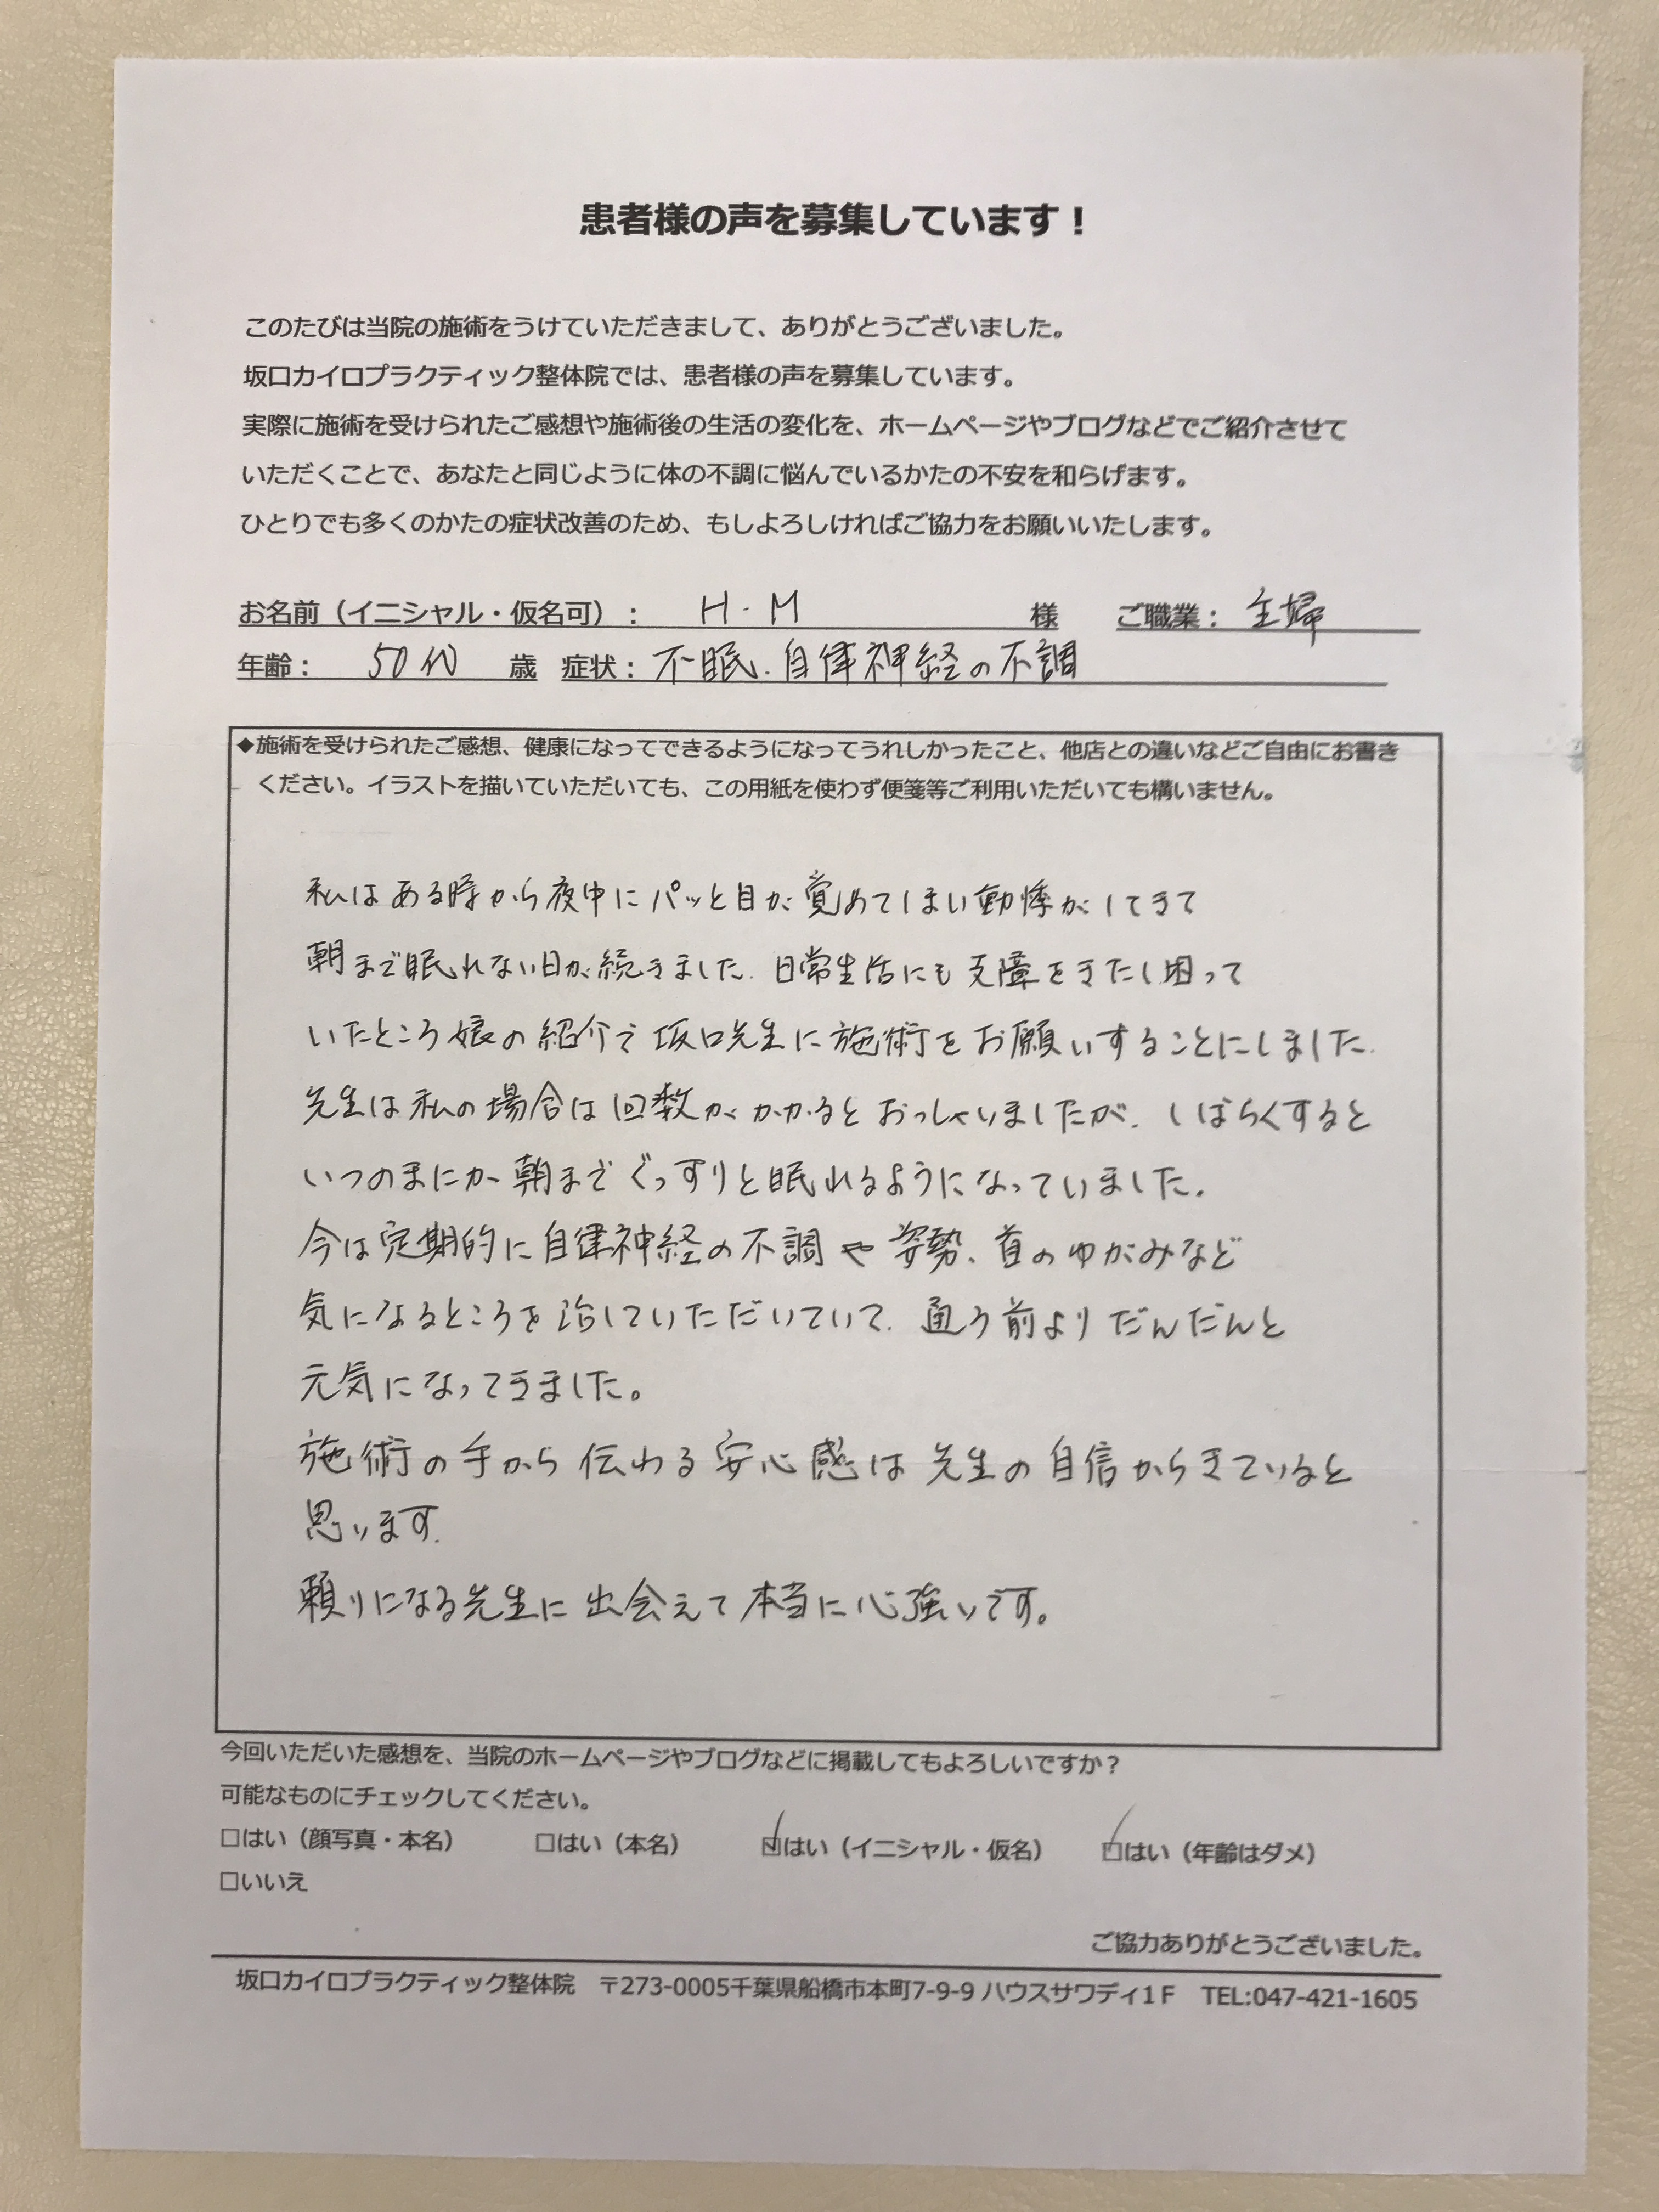 患者様の声を募集しています！
このたびは当院の施術をうけていただきまして、ありがとうございました。
坂口カイロプラクティック整体院では、患者様の声を募集しています。
実際に施術を受けられたご感想や施術後の生活の変化を、ホームページやブログなどでご紹介させて
いただくことで、あなたと同じように体の不調に悩んでいるかたの不安を和らげます。
ひとりでも多くのかたの症状改善のため、もしよろしければご協力をお願いいたします。
お名前（イニシャル・仮名可）： H・M 様 ご職業： 主婦
年齢： 50代 歳 症状： 不眠．自律神経の不調
◆施術を受けられたご感想、健康になってできるようになってうれしかったこと、他店との違いなどご自由にお書き
ください。イラストを描いていただいても、この用紙を使わず便箋等ご利用いただいても構いません。
私はある時から夜中にパッと目が覚めてしまい動悸がしてきて
朝まで眠れない日が続きました．日常生活にも支障をきたし困って
いたところ娘の紹介で坂口先生に施術をお願いすることにしました．
先生は私の場合は回数がかかるとおっしゃいましたが、しばらくすると
いつのまにか朝までぐっすりと眠れるようになっていました。
今は定期的に自律神経の不調や姿勢、首のゆがみなど
気になるところを治していただいていて、通う前よりだんだんと
元気になってきました。
施術の手から伝わる安心感は先生の自信からきていると
思います．
頼りになる先生に出会えて本当に心強いです。
今回いただいた感想を、当院のホームページやブログなどに掲載してもよろしいですか？
可能なものにチェックしてください。
□はい（顔写真・本名） □はい（本名） ☑はい（イニシャル・仮名） ☑はい（年齢はダメ）
□いいえ
ご協力ありがとうございました。
坂口カイロプラクティック整体院 〒273-0005千葉県船橋市本町7-9-9 ハウスサワディ1Ｆ TEL:047-421-1605